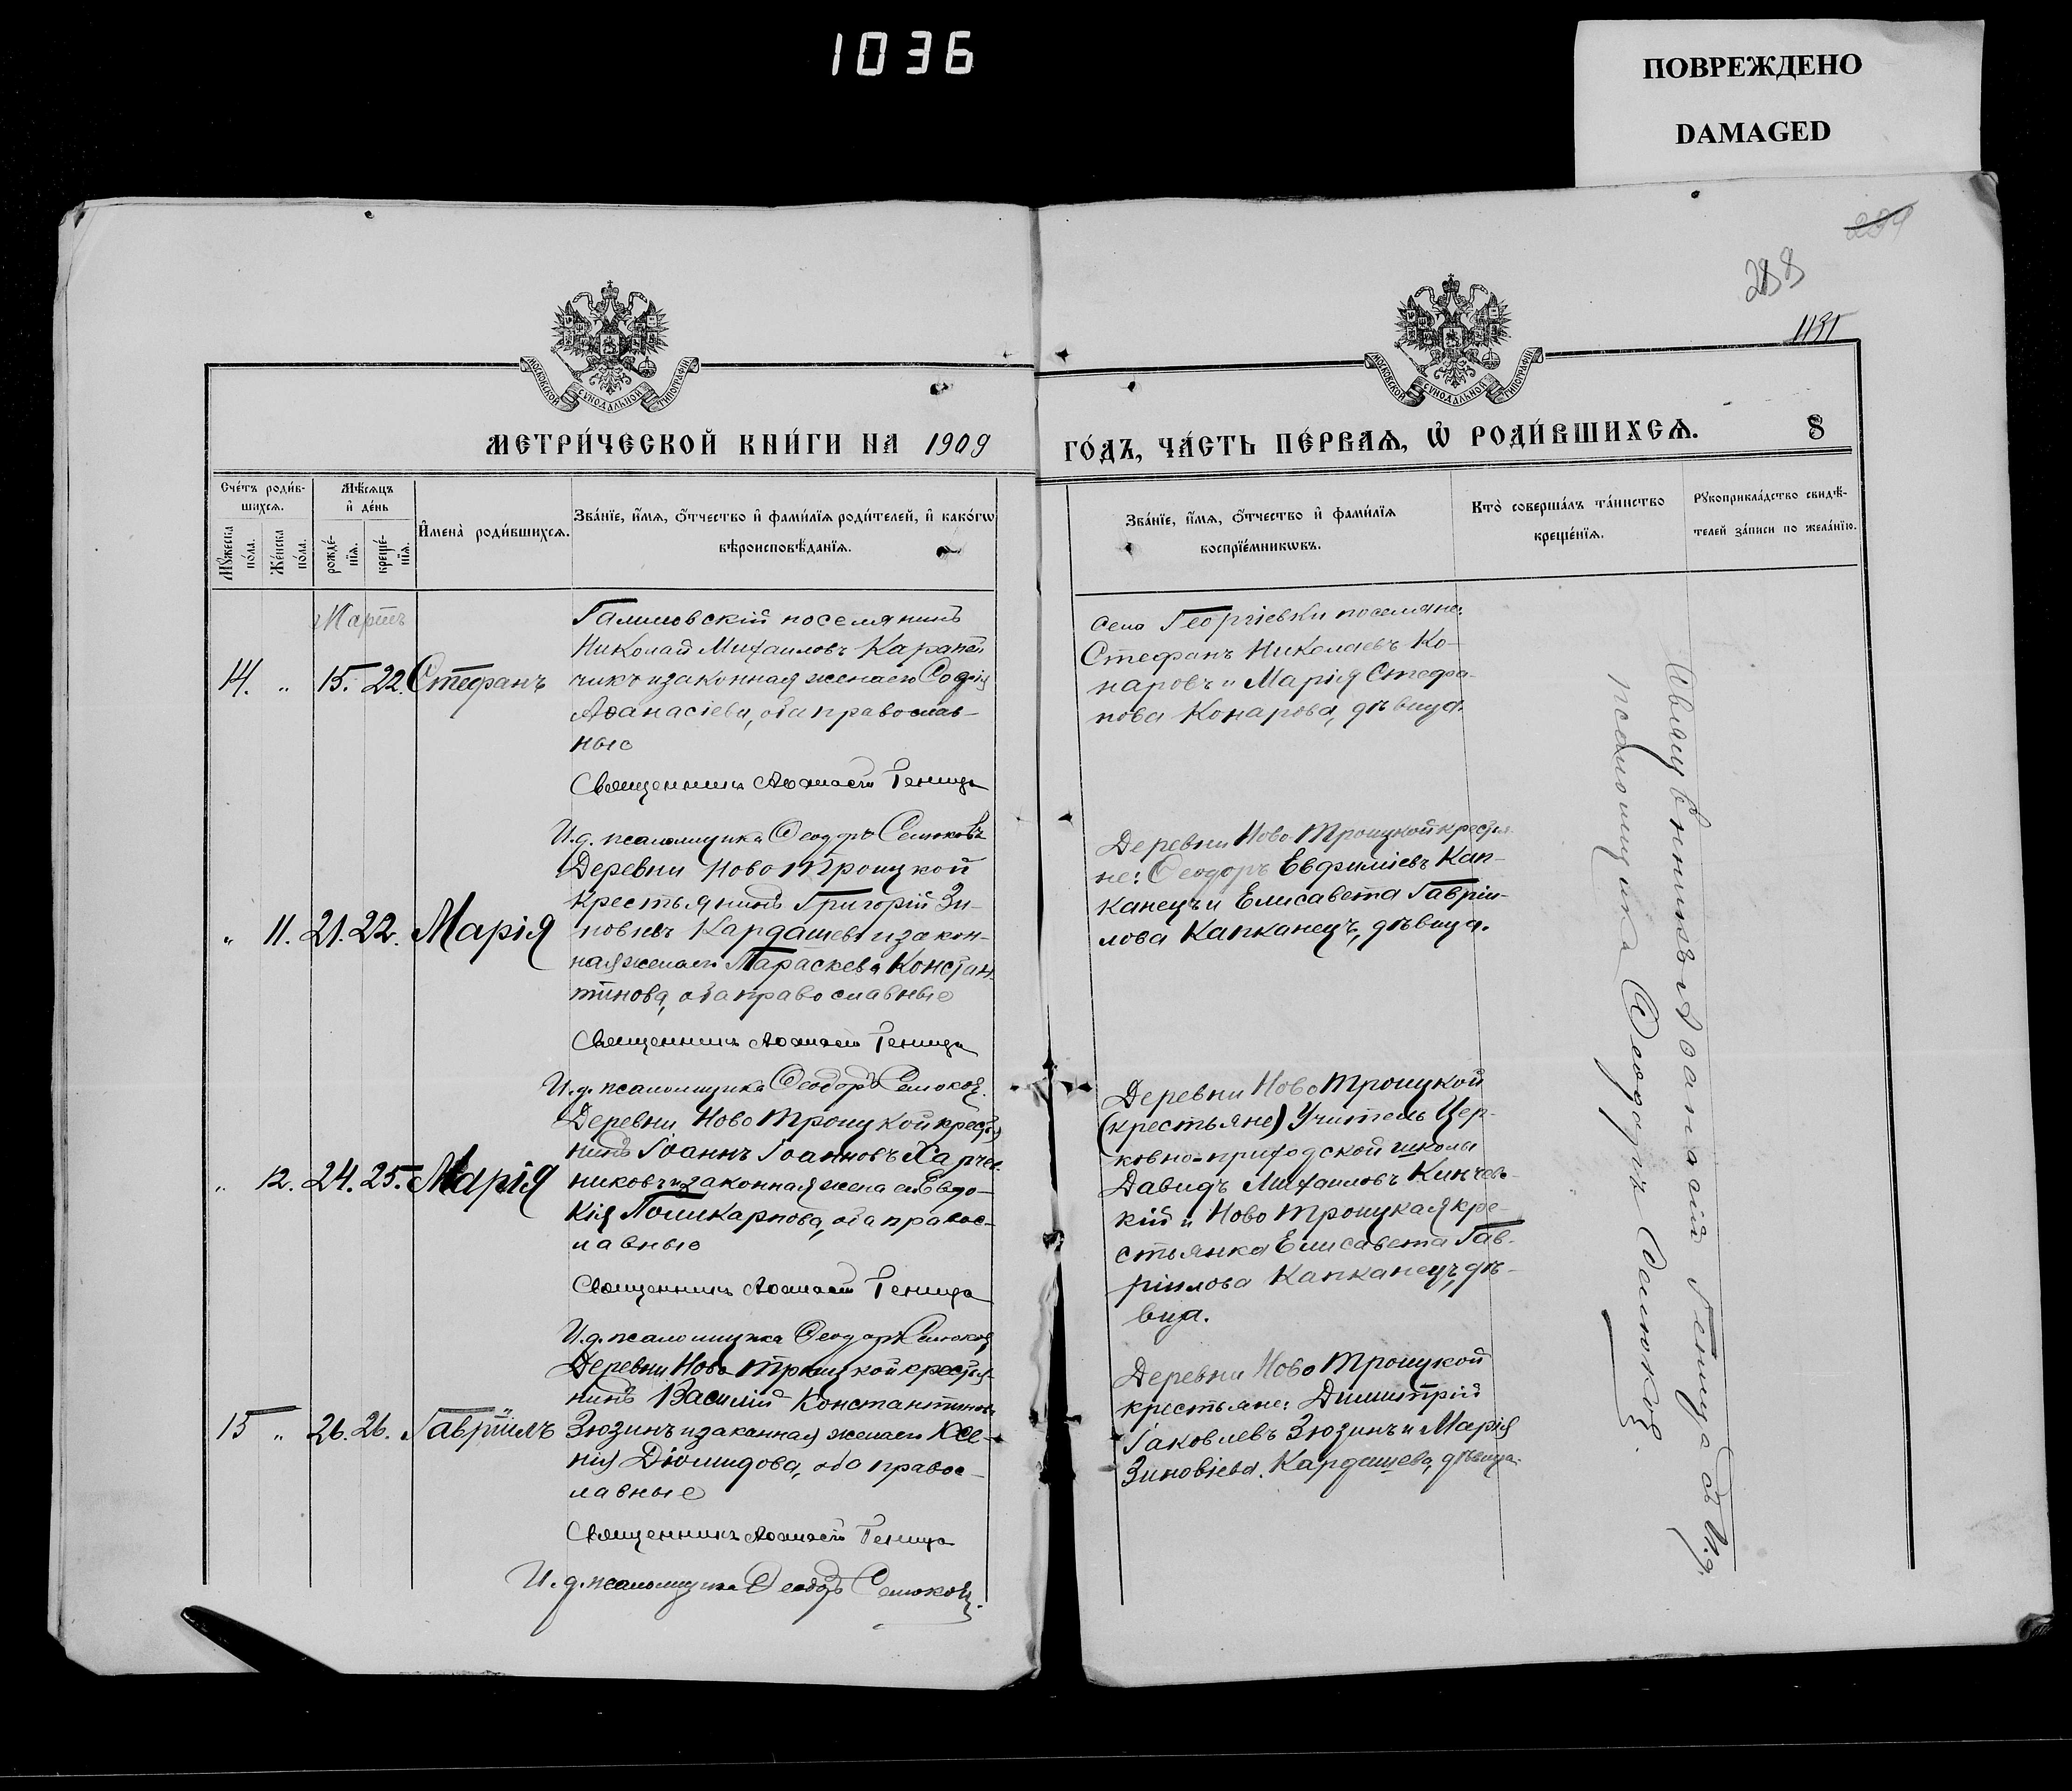 1036
ПОВРЕЖДЕНО
DAMAGED
294
288
МОСКОВСКОЙ СѴНОДАЛЬНОЙ ТИПОГРАФІИ
МОСКОВСКОЙ СѴНОДАЛЬНОЙ ТИПОГРАФІИ
МЕТРИ́ЧЕСКОЙ КНИ́ГИ НА 1909
ГО́ДЪ, ЧА́СТЬ ПЕ́РВАѦ, Ѽ РОДИ́ВШИХСѦ. 8
Сче́тъ роди́в-
шихсѧ.
Мѣ́сѧцъ
и҆ де́нь
Мꙋ́жеска
по́ла.
Же́нска
по́ла.
рожде́-
нїѧ.
креще́-
нїѧ.
И҆мена̀ роди́вшихсѧ.
Зва́нїе, и҆́мѧ, ѻ҆́тчество и҆ фами́лїѧ роди́телей, и҆ како́гѡ
вѣроисповѣ́данїѧ.
Зва́нїе, и҆́мѧ, ѻ҆́тчество и҆ фами́лїѧ
воспрїе́мникѡвъ.
Кто̀ соверша́лъ та́инство
креще́нїѧ.
Рꙋкоприкла́дство свидѣ́-
телей за́писи по жела́нїю.
Мартъ
14. " 15. 22. Стефанъ
Галицовскій поселянинъ
Николай Михаиловъ Карапей
чикъ и законная жена его Софія
Аѳанасіева, оба православ-
ные
Священникъ Аѳанасій Геница
И.д. псаломщика Ѳеодоръ Семюковъ
Села Георгіевки поселяне:
Стефанъ Николаевъ Ко-
наровъ и Марія Стефа-
нова Конарова, дѣвица.
" 11. 21. 22. Марія
Деревни Ново Троицкой
Крестьянинъ Григорій Зи-
новіевъ Кардашевъ и закон-
ная жена его Параскева Констан
тинова, оба православные
Священникъ Аѳанасій Геница
И.д. псаломщика Ѳеодоръ Семюковъ
Деревни Ново Троицкой крестья
не: Ѳеодоръ Евфиміевъ Кап-
канецъ и Елисавета Гавріи-
лова Капканецъ, дѣвица.
" 12. 24. 25. Марія
Деревни Ново Троицкой крестья
нинъ Іоаннъ Іоанновъ Харчен
никовъ и законная жена его Евдо-
кія Поликарпова, оба правос-
лавные
Священникъ Аѳанасій Геница
И.д. псаломщика Ѳеодоръ Семюковъ
Деревни Ново Троицкой
(крестьяне) Учитель Цер-
ковно-приходской школы
Давидъ Михаиловъ Кинчев-
кій и Ново Троицкая кре-
стьянка Елисавета Гав-
ріилова Капканецъ, дѣ-
вица.
15 " 26. 26. Гавріилъ
Деревни Ново Троицкой крестья-
нинъ Василій Константиновъ
Зюзинъ и законная жена его Ксе-
нія Діомидова, оба правос-
лавные
Священникъ Аѳанасій Геница
И.д. псаломщика Ѳеодоръ Семюковъ.
Деревни Ново Троицкой
крестьяне: Димитрій
Іаковлевъ Зюзинъ и Марія
Зиновіева Кардашева, дѣвица.
Священникъ Аѳанасій Геница съ И.д.
псаломщика Ѳеодоръ Семюковъ.